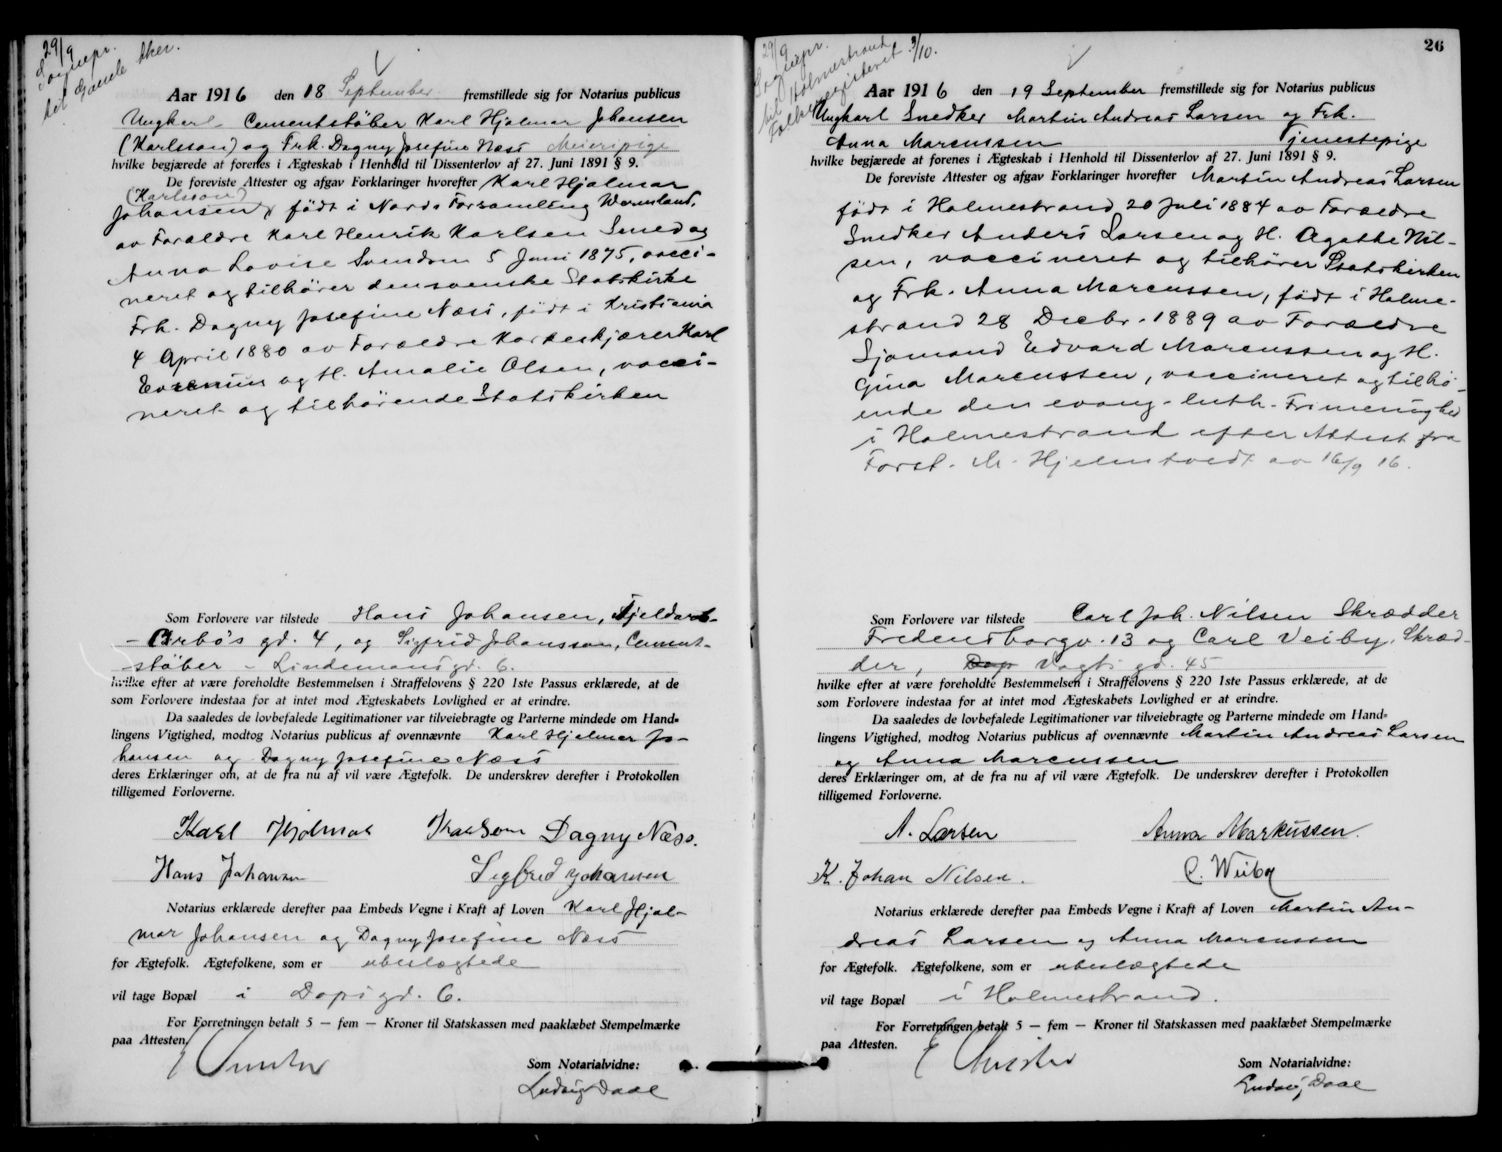 29/9
Sognepr.
til Gamle Aker.
Aar 1916 den 18 September fremstillede sig for Notarius publicus
Ungkarl Cementstøber Karl Hjalmar Johansen
(Karlsson) og Frk. Dagny Josefine Næss Meieripige
hvilke begjærede at forenes i Ægteskab i Henhold til Dissenterlov af 27. Juni 1891 § 9.
De foreviste Attester og afgav Forklaringer hvorefter Karl Hjalmar
(Karlsson)
Johansen, født i Nords Forsamling Wermland,
av Forældre Karl Henrik Karlsen Smed og
Anna Lovise Svendsen 5 Juni 1875, vacci-
neret og tilhører den svenske Statskirke
Frk. Dagny Josefine Næss, født i Kristiania
4 April 1880 av Forældre Korkeskjærer Karl
Evensen og H. Amalie Olsen, vacci-
neret og tilhørende Statskirken
Som Forlovere var tilstede Hans Johansen,
Arbós gd. 4, og Sigfrid Johansson, Cement-
støber - Lindemansgd. 6.
hvilke efter at være foreholdte Bestemmelsen i Straffelovens § 220 1ste Passus erklærede, at de
som Forlovere indestaa for at intet mod Ægteskabets Lovlighed er at erindre.
Da saaledes de lovbefalede Legitimationer var tilveiebragte og Parterne mindede om Hand-
lingens Vigtighed, modtog Notarius publicus af ovennævnte Karl Hjalmar Jo-
hansen og Dagny Josefine Næss
deres Erklæringer om, at de fra nu af vil være Ægtefolk. De underskrev derefter i Protokollen
tilligemed Forloverne.
Karl Hjalmar Karlson Dagny Næss.
Hans Johansen Sigfred Johansson
Notarius erklærede derefter paa Embeds Vegne i Kraft af Loven Karl Hjal-
mar Johansen og Dagny Josefine Næss
for Ægtefolk. Ægtefolkene, som er ubeslægtede
vil tage Bopæl i Dopsgd. 6.
For Forretningen betalt 5 — fem — Kroner til Statskassen med paaklæbet Stempelmærke
paa Attesten.
Som Notarialvidne:
Ludvig Daae
26
29/9
Sognepr.
til Holmestrand
Folkeregisteret 3/10.
Aar 1916 den 19 September fremstillede sig for Notarius publicus
Ungkarl Snedker Martin Andreas Larsen og Frk.
Anna Marcussen Tjenestepige
hvilke begjærede at forenes i Ægteskab i Henhold til Dissenterlov af 27. Juni 1891 § 9.
De foreviste Attester og afgav Forklaringer hvorefter Martin Andreas Larsen
født i Holmestrand 20 Juli 1884 av Forældre
Snedker Anders Larsen og H. Agathe Nil-
sen, vaccineret og tilhører Statskirken
og Frk. Anna Marcussen, født i Holme-
strand 28 Decbr. 1889 av Forældre
Sjømand Edvard Marcussen og H.
Gina Marcussen, vaccineret og tilhø-
ende den evang-luth. Frimenighed
i Holmestrand efter Attest fra
Forst. M. Hjelmtvedt av 16/9 16.
Som Forlovere var tilstede Carl Joh. Nilsen Skrædder
Fredensborgv. 13 og Carl Veiby, Skræd-
der, Dop Vogts gd. 45
hvilke efter at være foreholdte Bestemmelsen i Straffelovens § 220 1ste Passus erklærede, at de
som Forlovere indestaa for at intet mod Ægteskabets Lovlighed er at erindre.
Da saaledes de lovbefalede Legitimationer var tilveiebragte og Parterne mindede om Hand-
lingens Vigtighed, modtog Notarius publicus af ovennævnte Martin Andreas Larsen
og Anna Marcussen
deres Erklæringer om, at de fra nu af vil være Ægtefolk. De underskrev derefter i Protokollen
tilligemed Forloverne.
A. Larsen Anna Markussen.
K. Johan Nilsen. C. Weiby
Notarius erklærede derefter paa Embeds Vegne i Kraft af Loven Martin An-
dreas Larsen og Anna Marcussen
for Ægtefolk. Ægtefolkene, som er ubeslægtede
vil tage Bopæl i Holmestrand.
For Forretningen betalt 5 — fem — Kroner til Statskassen med paaklæbet Stempelmærke
paa Attesten.
Som Notarialvidne:
Ludvig Daae